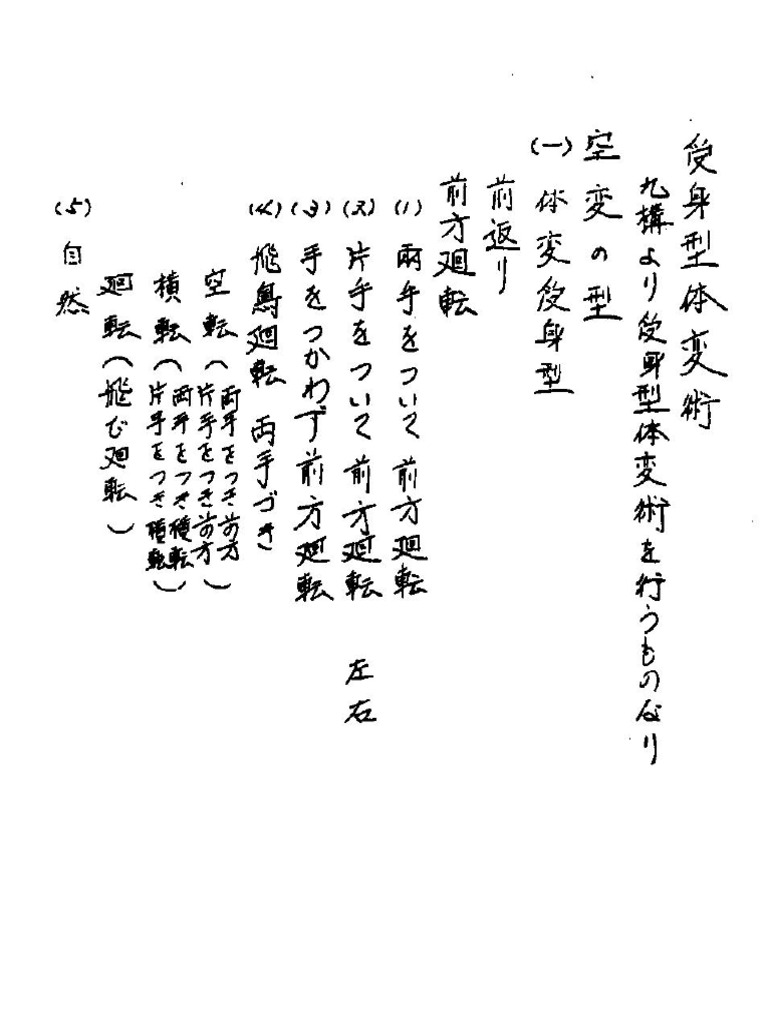 受身型体変術
九構より受身型体変術を行うものなり
空変の型
(一)体変受身型
前返り
前方廻転
(1) 両手をついて前方廻転
(2) 片手をついて前方廻転 左右
(3) 手をつかわず前方廻転
(4) 飛鳥廻転 両手づき
空転(両手をつき前方
片手をつき前方)
横転(両手をつき横転
片手をつき横転)
廻転(飛び廻転)
(5) 自然